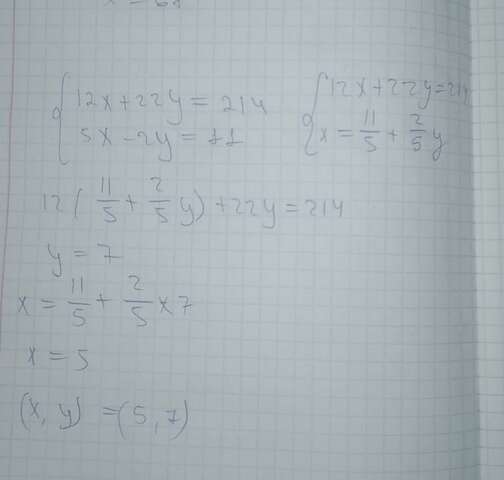 x = 61
{12x + 22y = 214
5x - 2y = 11
{12x + 22y = 214
x = 11/5 + 2/5 y
12(11/5 + 2/5 y) + 22y = 214
y = 7
x = 11/5 + 2/5 × 7
x = 5
(x, y) = (5, 7)